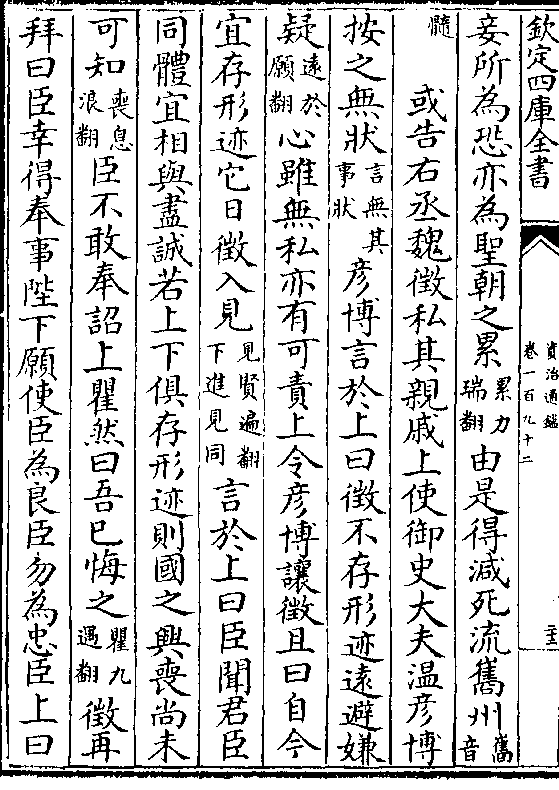 欽定四庫全書
資治通鑑
卷一百九十二
主
妾所為恐亦為聖朝之累累力瑞翻由是得減死流巂州巂音
髓
或告右丞魏徵私其親戚上使御史大夫温彦博
按之無狀言無其事狀彦博言於上曰徵不存形迹遠避嫌
疑遠於願翻心雖無私亦有可責上令彦博讓徵且曰自今
宜存形迹它日徵入見見賢遍翻下進見同言於上曰臣聞君臣
同體宜相與盡誠若上下俱存形迹則國之興喪尚未
可知喪息浪翻臣不敢奉詔上瞿然曰吾已悔之瞿九遇翻徵再
拜曰臣幸得奉事陛下願使臣為良臣勿為忠臣上曰